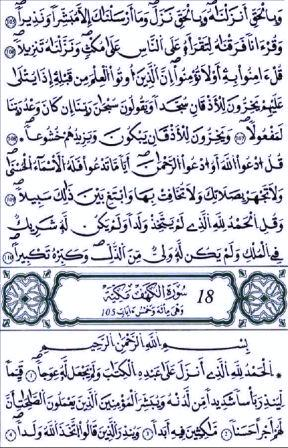 وَبِالْحَقِّ أَنزَلْنَٰهُ وَبِالْحَقِّ نَزَلَ وَمَا أَرْسَلْنَٰكَ إِلَّا مُبَشِّرًا وَنَذِيرًا
وَقُرْءَانًا فَرَقْنَٰهُ لِتَقْرَأَهُ عَلَى النَّاسِ عَلَىٰ مُكْثٍ وَنَزَّلْنَٰهُ تَنزِيلًا
قُلْ ءَامِنُوا بِهِ أَوْ لَا تُؤْمِنُوا إِنَّ الَّذِينَ أُوتُوا الْعِلْمَ مِن قَبْلِهِ إِذَا يُتْلَىٰ
عَلَيْهِمْ يَخِرُّونَ لِلْأَذْقَانِ سُجَّدًا وَيَقُولُونَ سُبْحَٰنَ رَبِّنَا إِن كَانَ وَعْدُ رَبِّنَا
لَمَفْعُولًا وَيَخِرُّونَ لِلْأَذْقَانِ يَبْكُونَ وَيَزِيدُهُمْ خُشُوعًا
قُلُ ادْعُوا اللَّهَ أَوُ ادْعُوا الرَّحْمَٰنَ أَيًّا مَّا تَدْعُوا فَلَهُ الْأَسْمَاءُ الْحُسْنَىٰ
وَلَا تَجْهَرْ بِصَلَاتِكَ وَلَا تُخَافِتْ بِهَا وَابْتَغِ بَيْنَ ذَٰلِكَ سَبِيلًا
وَقُلِ الْحَمْدُ لِلَّهِ الَّذِي لَمْ يَتَّخِذْ وَلَدًا وَلَمْ يَكُن لَّهُ شَرِيكٌ
فِي الْمُلْكِ وَلَمْ يَكُن لَّهُ وَلِيٌّ مِّنَ الذُّلِّ وَكَبِّرْهُ تَكْبِيرًا
18 سُورَةُ الْكَهْفِ مَكِّيَّة
وَهِيَ مِائَةٌ وَخَمْسُ ءَايَاتٍ 105
بِسْمِ اللَّهِ الرَّحْمَٰنِ الرَّحِيمِ
الْحَمْدُ لِلَّهِ الَّذِي أَنزَلَ عَلَىٰ عَبْدِهِ الْكِتَٰبَ وَلَمْ يَجْعَل لَّهُ عِوَجًا قَيِّمًا
لِّيُنذِرَ بَأْسًا شَدِيدًا مِّن لَّدُنْهُ وَيُبَشِّرَ الْمُؤْمِنِينَ الَّذِينَ يَعْمَلُونَ الصَّٰلِحَٰتِ أَنَّ
لَهُمْ أَجْرًا حَسَنًا مَّٰكِثِينَ فِيهِ أَبَدًا وَيُنذِرَ الَّذِينَ قَالُوا اتَّخَذَ اللَّهُ وَلَدًا